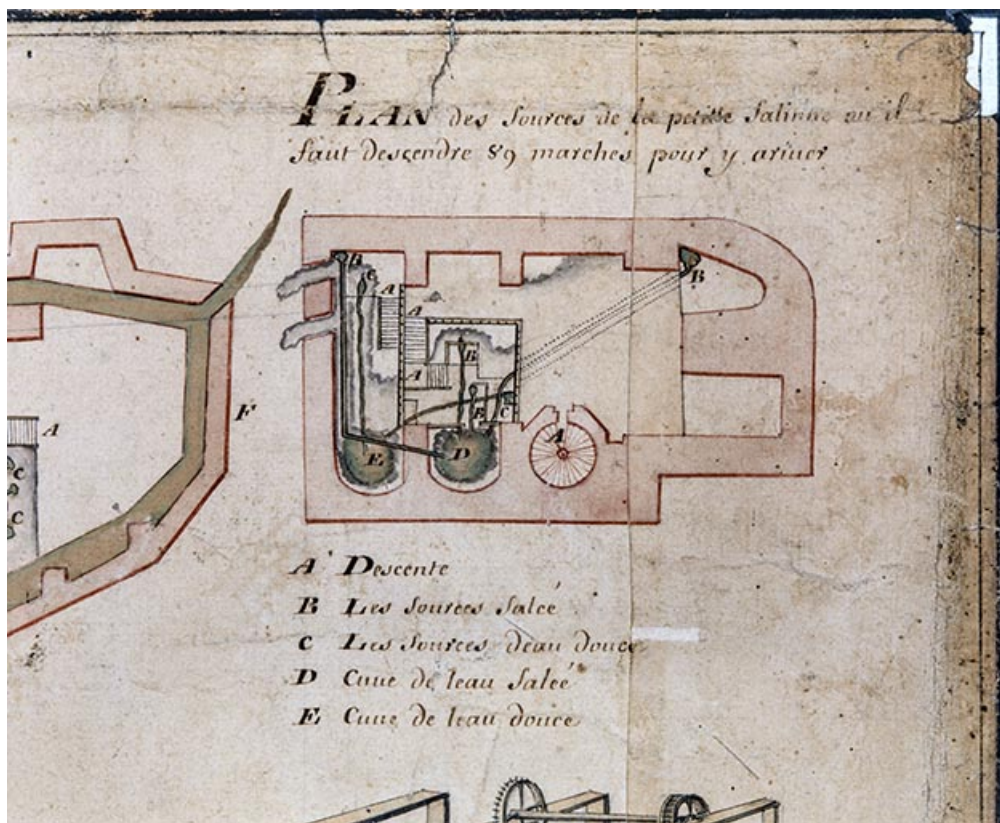 PLAN des sources de la petitte salinne ou il
faut descendre 89 marches pour y ariuer
B
C
A
A
B
B
A
B
C
E
D
A
F
A
C
C
A Descente
B Les sources saleé
C Les sources deau douce
D Cuue de leau saleé
E Cuue de leau douce